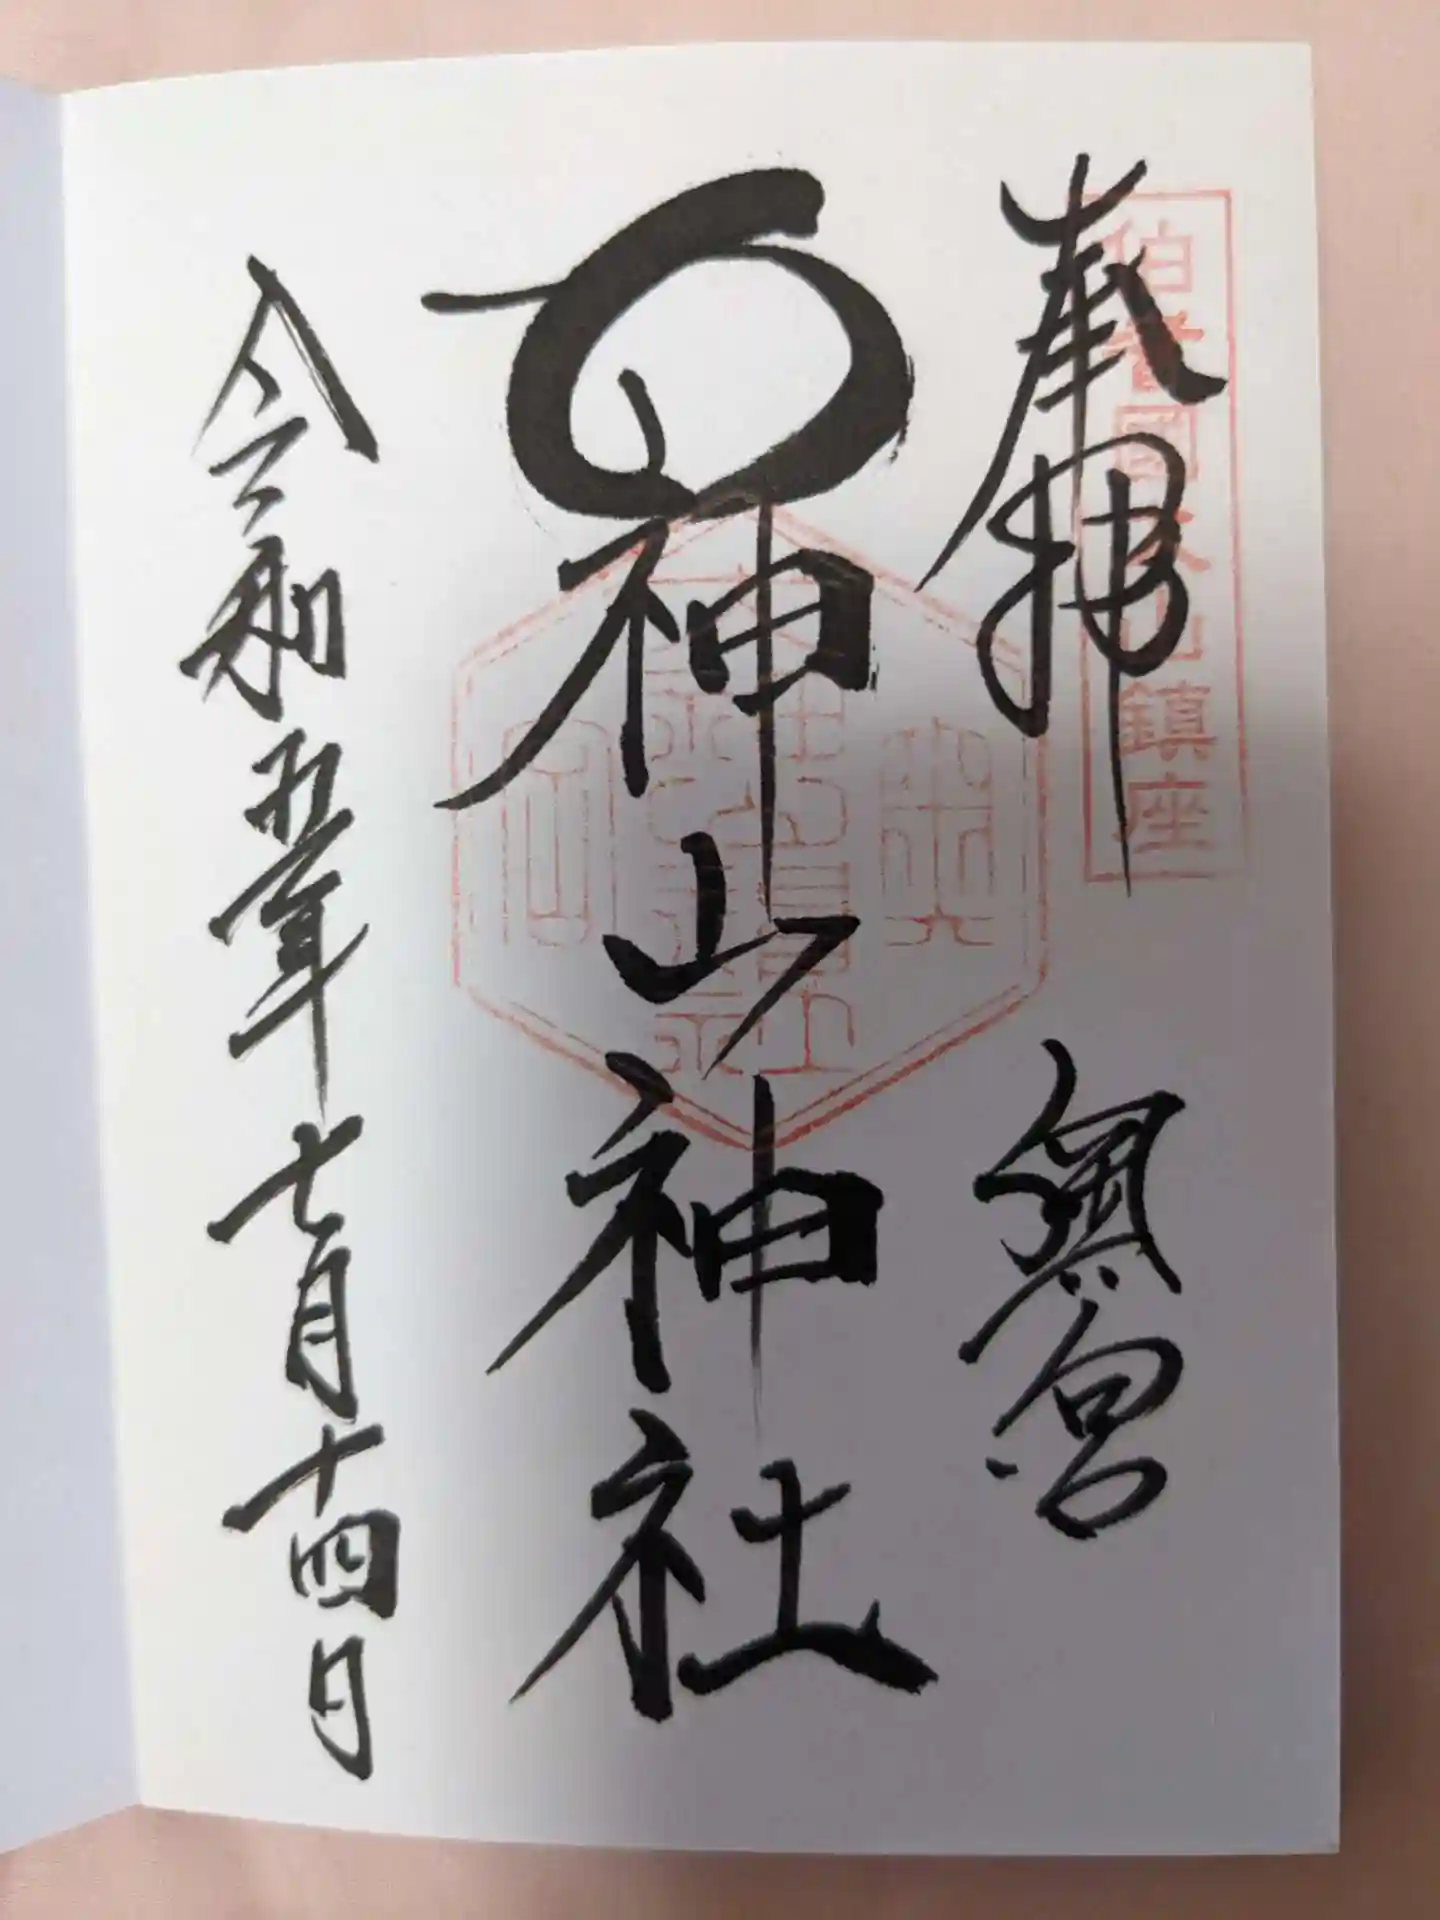 伯耆國大山鎮座
奉拝 奥宮
大神山神社
令和五年七月十四日